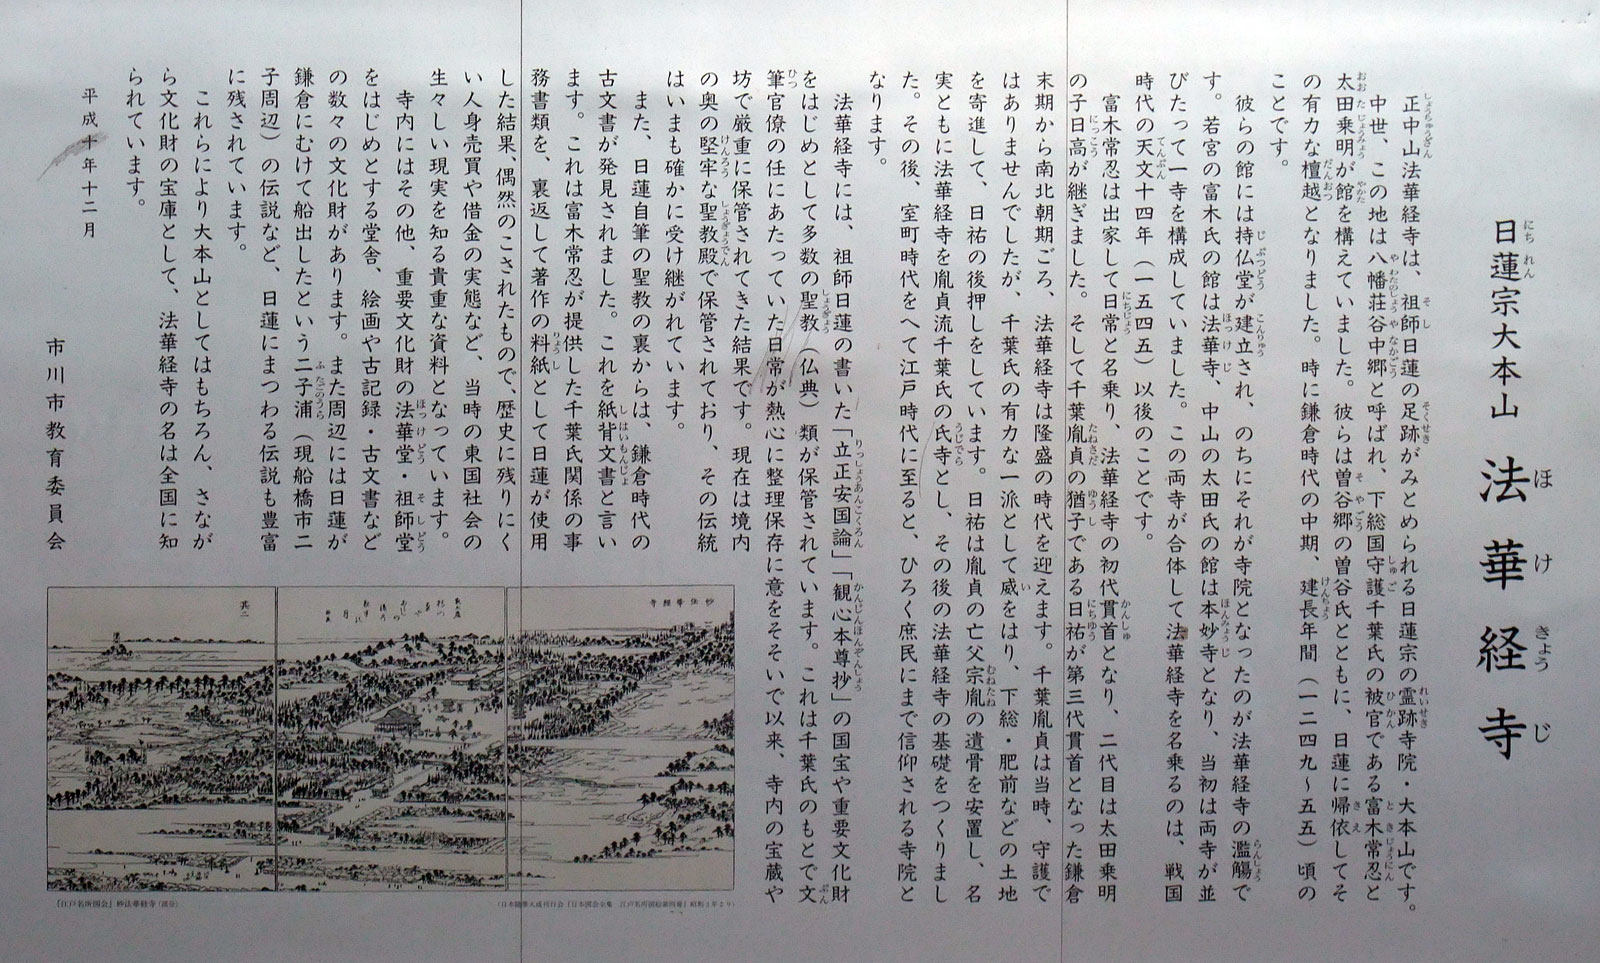 日蓮宗大本山 法華経寺
正中山法華経寺は、祖師日蓮の足跡がみとめられる日蓮宗の霊跡寺院・大本山です。
中世、この地は八幡荘谷中郷と呼ばれ、下総国守護千葉氏の被官である富木常忍と
太田乗明が館を構えていました。彼らは曽谷郷の曽谷氏とともに、日蓮に帰依してそ
の有力な檀越となりました。時に鎌倉時代の中期、建長年間（一二四九～五五）頃の
ことです。
彼らの館には持仏堂が建立され、のちにそれが寺院となったのが法華経寺の濫觴で
す。若宮の富木氏の館は法華寺、中山の太田氏の館は本妙寺となり、当初は両寺が並
びたって一寺を構成していました。この両寺が合体して法華経寺を名乗るのは、戦国
時代の天文十四年（一五四五）以後のことです。
富木常忍は出家して日常と名乗り、法華経寺の初代貫首となり、二代目は太田乗明
の子日高が継ぎました。そして千葉胤貞の猶子である日祐が第三代貫首となった鎌倉
末期から南北朝期ごろ、法華経寺は隆盛の時代を迎えます。千葉胤貞は当時、守護で
はありませんでしたが、千葉氏の有力な一派として威をはり、下総・肥前などの土地
を寄進して、日祐の後押しをしています。日祐は胤貞の亡父宗胤の遺骨を安置し、名
実ともに法華経寺を胤貞流千葉氏の氏寺とし、その後の法華経寺の基礎をつくりまし
た。その後、室町時代をへて江戸時代に至ると、ひろく庶民にまで信仰される寺院と
なります。
法華経寺には、祖師日蓮の書いた「立正安国論」「観心本尊抄」の国宝や重要文化財
をはじめとして多数の聖教（仏典）類が保管されています。これは千葉氏のもとで文
筆官僚の任にあたっていた日常が熱心に整理保存に意をそそいで以来、寺内の宝蔵や
坊で厳重に保管されてきた結果です。現在は境内
の奥の堅牢な聖教殿で保管されており、その伝統
はいまも確かに受け継がれています。
また、日蓮自筆の聖教の裏からは、鎌倉時代の
古文書が発見されました。これを紙背文書と言い
ます。これは富木常忍が提供した千葉氏関係の事
務書類を、裏返して著作の料紙として日蓮が使用
した結果、偶然のこされたもので、歴史に残りにく
い人身売買や借金の実態など、当時の東国社会の
生々しい現実を知る貴重な資料となっています。
寺内にはその他、重要文化財の法華堂・祖師堂
をはじめとする堂舎、絵画や古記録・古文書など
の数々の文化財があります。また周辺には日蓮が
鎌倉にむけて船出したという二子浦（現船橋市二
子周辺）の伝説など、日蓮にまつわる伝説も豊富
に残されています。
これらにより大本山としてはもちろん、さなが
ら文化財の宝庫として、法華経寺の名は全国に知
られています。
平成十年十二月
市川市教育委員会
妙法華経寺
其二
『江戸名所図会』妙法華経寺（部分）